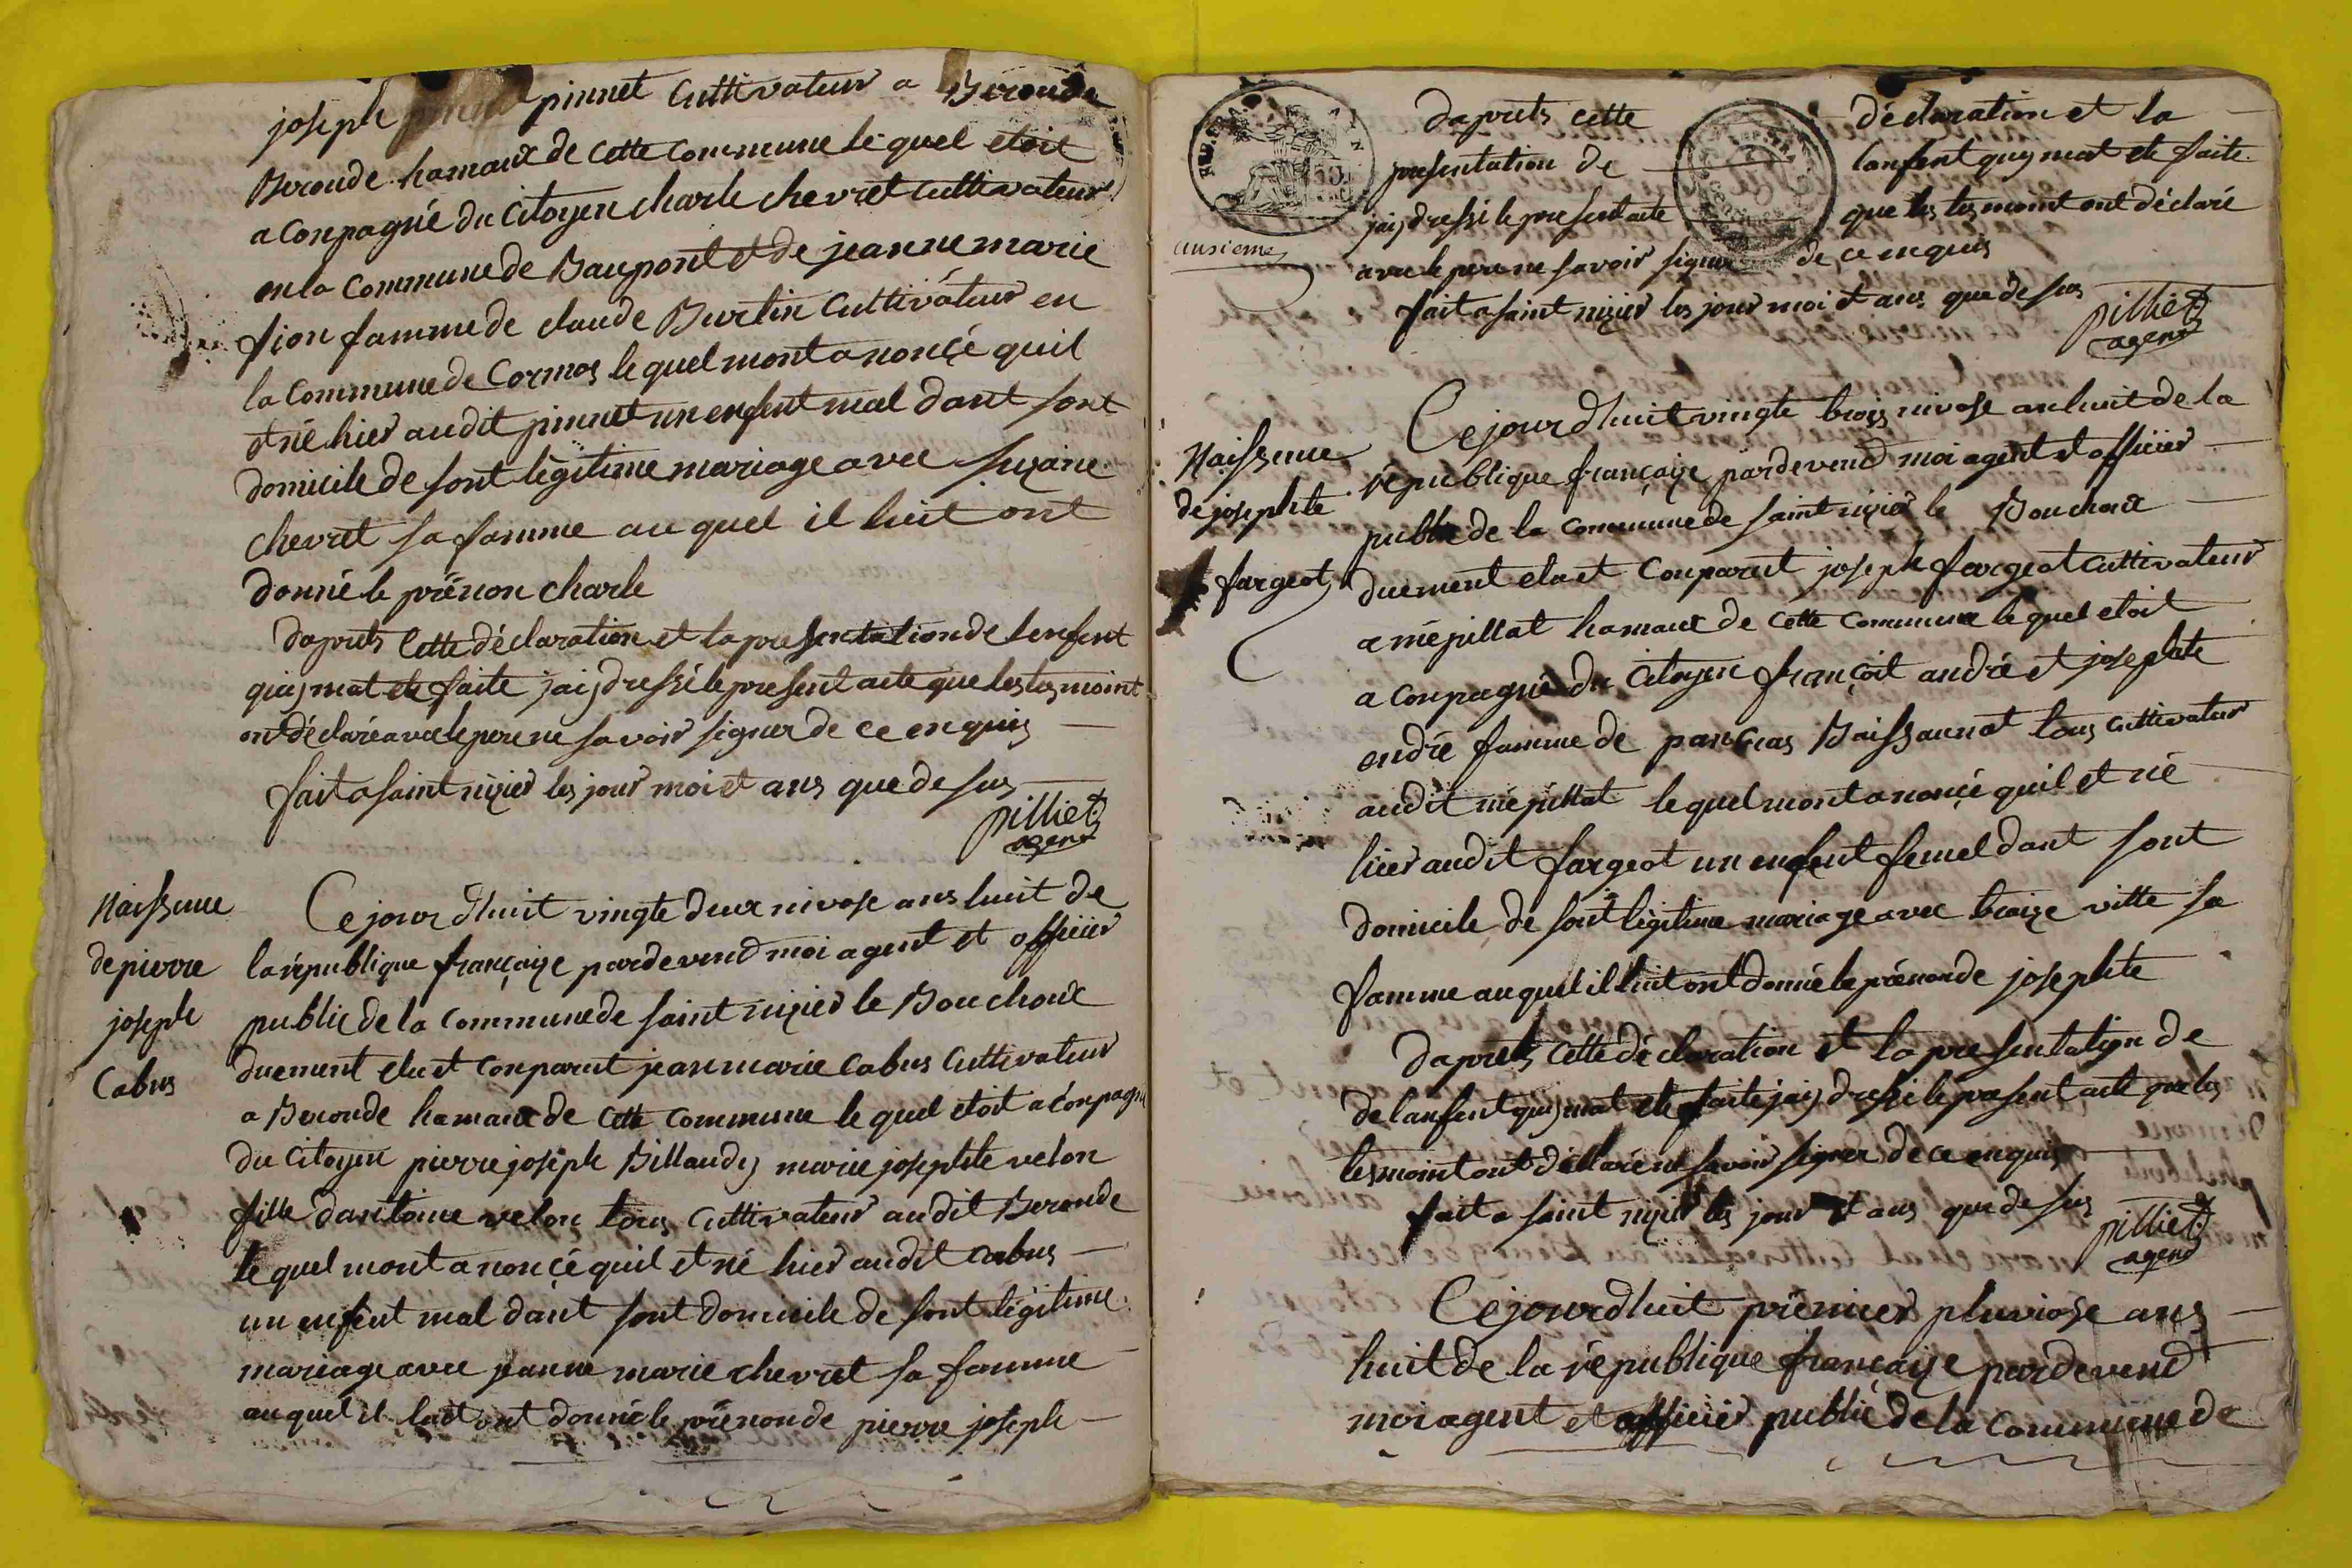 joseph pinnet Cuttivateur a Bironde
Bironde hamaux de cette commune le quel etoit
a Conpagnié du Citoyen charle chevret cuttivateur
en la Commune de Baupont et de jeanne marie
fion famme de claude Burtin Cuttivateur en
la Commune de Cormos le quel mont anoncé quil
et né hier audit pinnet un enfent mal dant sont
domicile de sont légitime mariage avec suzane
chevret sa famme au quel il luit ont
donné le prénon charle
daprets cette déclaration et la presentation de lenfent
quiy mat ete faite jaiy dressé le present acte que les tesmoint
ont déclaré avec le pere ne savoir signer de ce enquis
fait a saint nizier les jour moi et ans que de sus
pilliet
agent
Naissance
de pierre
joseph
Cabus
Ce jour dhuit vingte deux nivose ans huit de
la république françaize pardevend moi agent et officier
public de la Commune de saint nizier le Bouchoux
duement elu et Conparut jean marie Cabus Cuttivateur
a Bironde hamaux de cette Commune le quel etoit a conpagné
du Citoyen pierre joseph Billaudy marie josephte velon
fille dantoine velon tous Cuttivateur audit Beronde
le quel mont anoncé quil et né hier audit cabus
un enfent mal dant sont domicile de sont légitime
mariage avec jeanne marie chevret sa famme
au quel il luit ont donné le prénon de pierre joseph
daprets cette déclaration et la
presentation de lanfent quy mat ete faite
jaiy dressé le present acte que les tesmoint ont déclaré
avec le pere ne savoir signer de ce enquis
onsieme
fait a saint nizier les jour moi et ans que de sus
pilliet
agent
Naissance
de josephte
fargeot
Ce jour dhuit vingte trois nivose an huit de la
république françaize pardevend moi agent et officier
public de la Commune de saint nizier le Bouchoux
duement elu et Conparut joseph fargeot Cuttivateur
a mépillat hamaux de cette Commune le quel etoit
a Conpagnié du Citoyen françoit andré et josephte
endré famme de pancras Baissaunat tous cuttivateur
audit mépillat le quel mont anoncé quil et né
hier audit fargeot un enfent femel dant sont
domicile de sont légitime mariage avec braize vitte sa
famme au quel il luit ont donné le prénon de josephte
daprets cette déclaration et la presentation de
de lanfent quiy mat ete faite jaiy dressé le present acte que les
tesmoint ont déclaré ne savoir signer de ce enquis
fait a saint nizier les jour et ans que de sus
pilliet
agend
Ce jourdhuit prémier pluviose ans
huit de la république françaize pardevend
moi agent et officier public de la Commune de